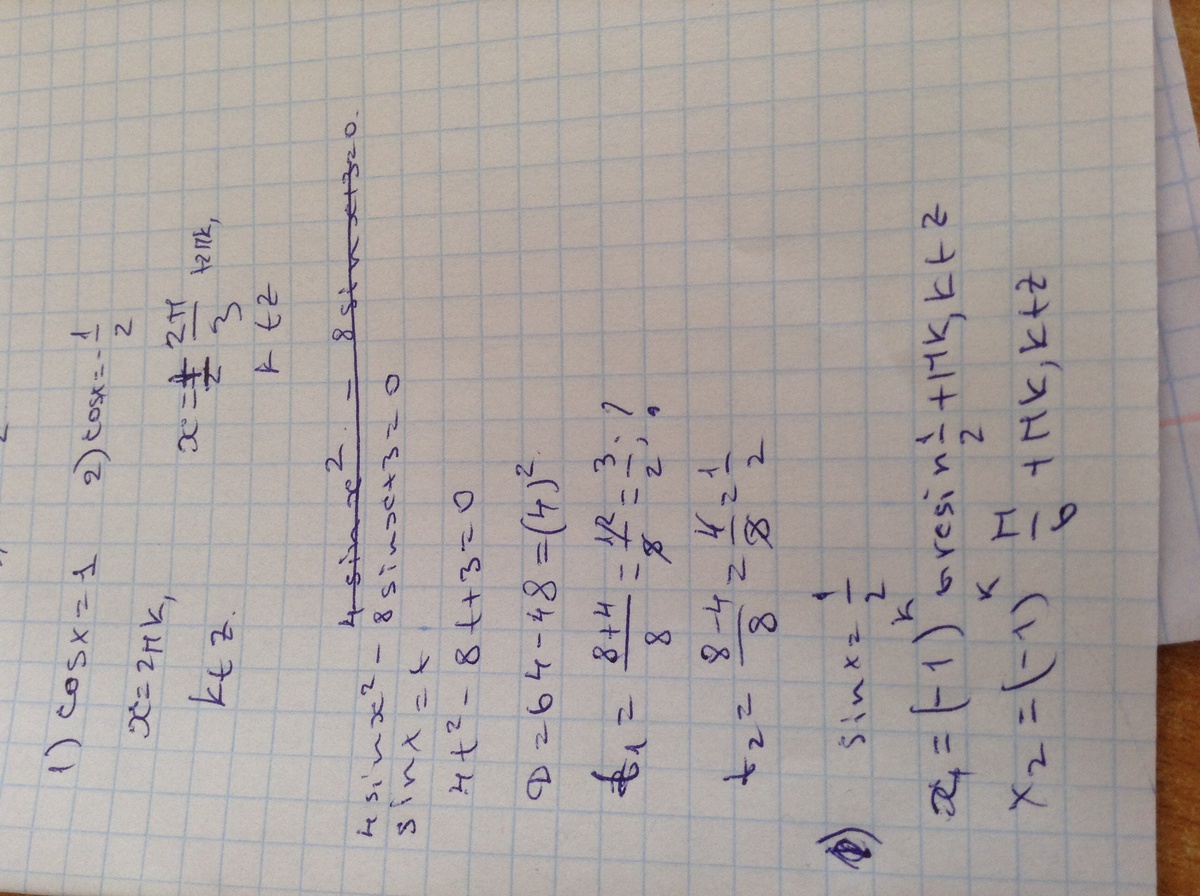 1) cosx=1 2) cosx=-1/2
x=2πk, x=± 2π/3 +2πk,
k∈z. k∈z
4 sin x² - 8 sin x+3=0.
4 sin x² - 8 sin x+3=0
sin x = t
4t² - 8t+3=0
D=64-48=(4)².
t₁= 8+4/8 = 12/8 = 3/2; ?
t₂= 8-4/8 = 4/8 = 1/2
sin x = 1/2
x₁=(-1)ᵏ arcsin 1/2 +πk, k∈z
x₂=(-1)ᵏ π/6 +πk, k∈z